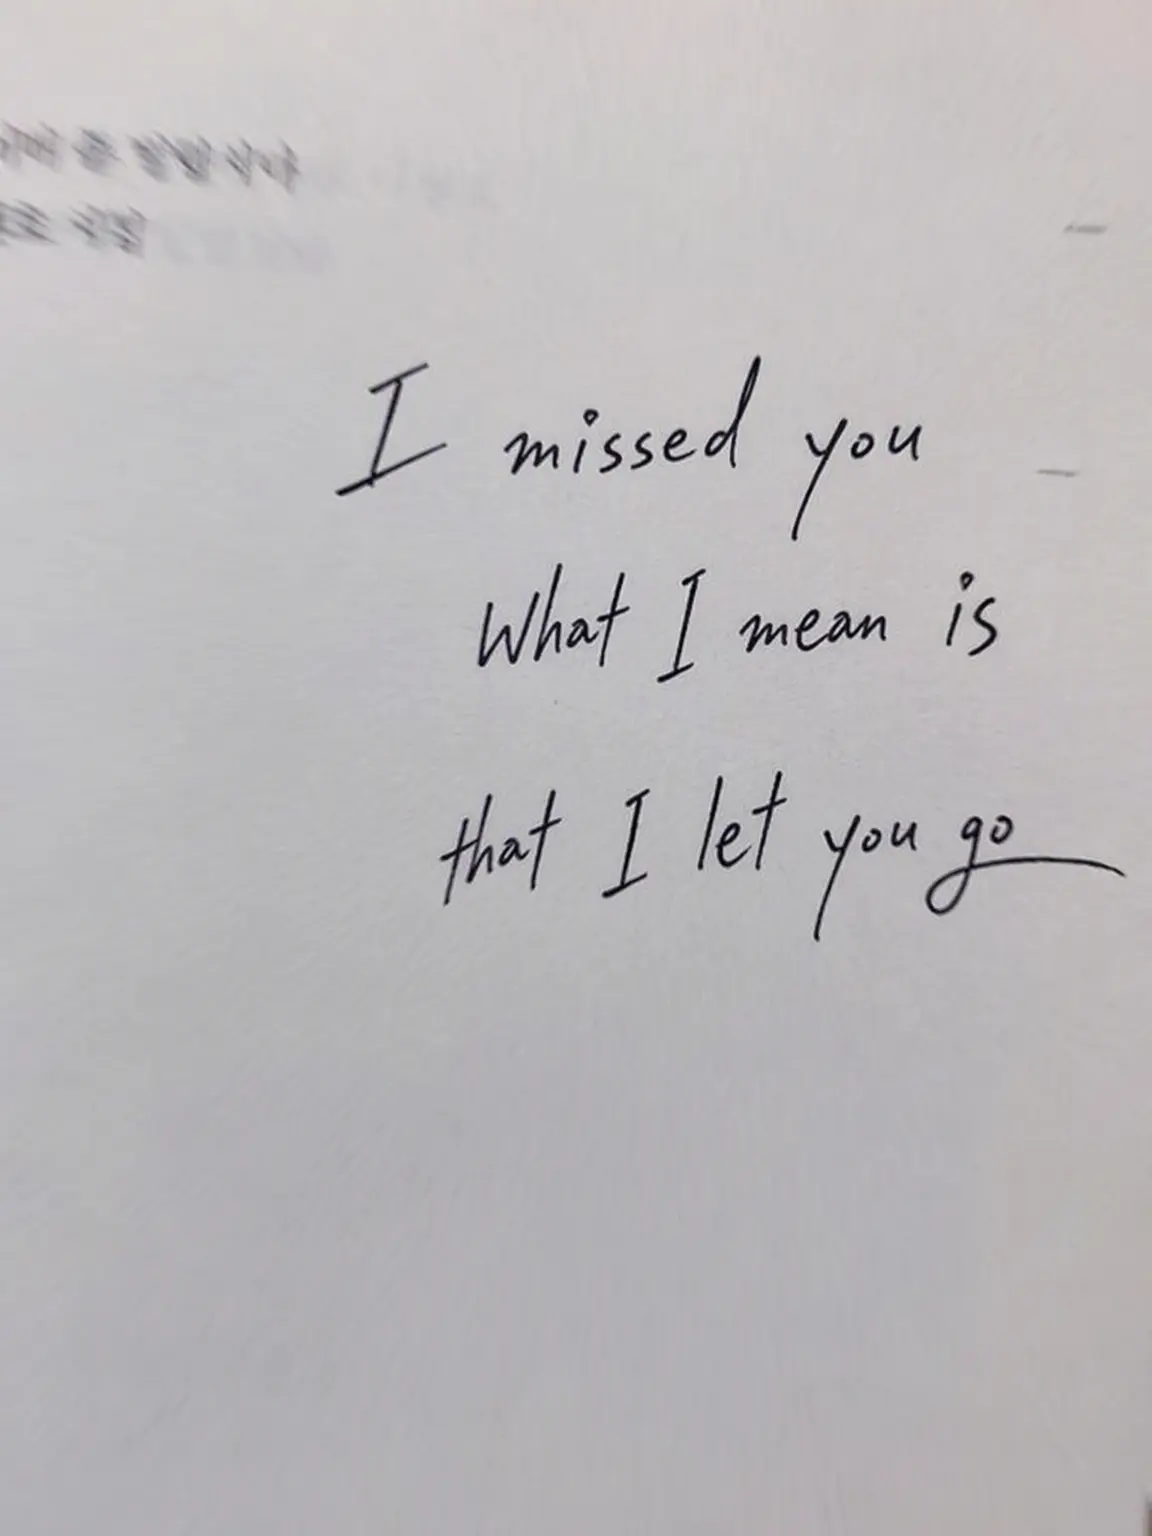 I missed you
What I mean is
that I let you go